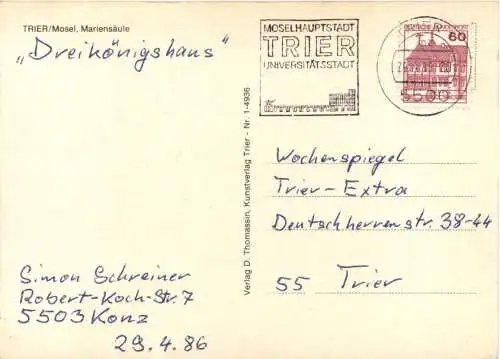 TRIER/Mosel, Mariensäule
„Dreikönigshaus"
MOSELHAUPTSTADT
TRIER
UNIVERSITÄTSSTADT
60
5500
Verlag D. Thomassin, Kunstverlag Trier - Nr. 1-4936
Wochenspiegel
Trier-Extra
Deutschherrenstr. 38-44
55 Trier
Simon Schreiner
Robert-Koch-Str. 7
5503 Konz
29.4.86